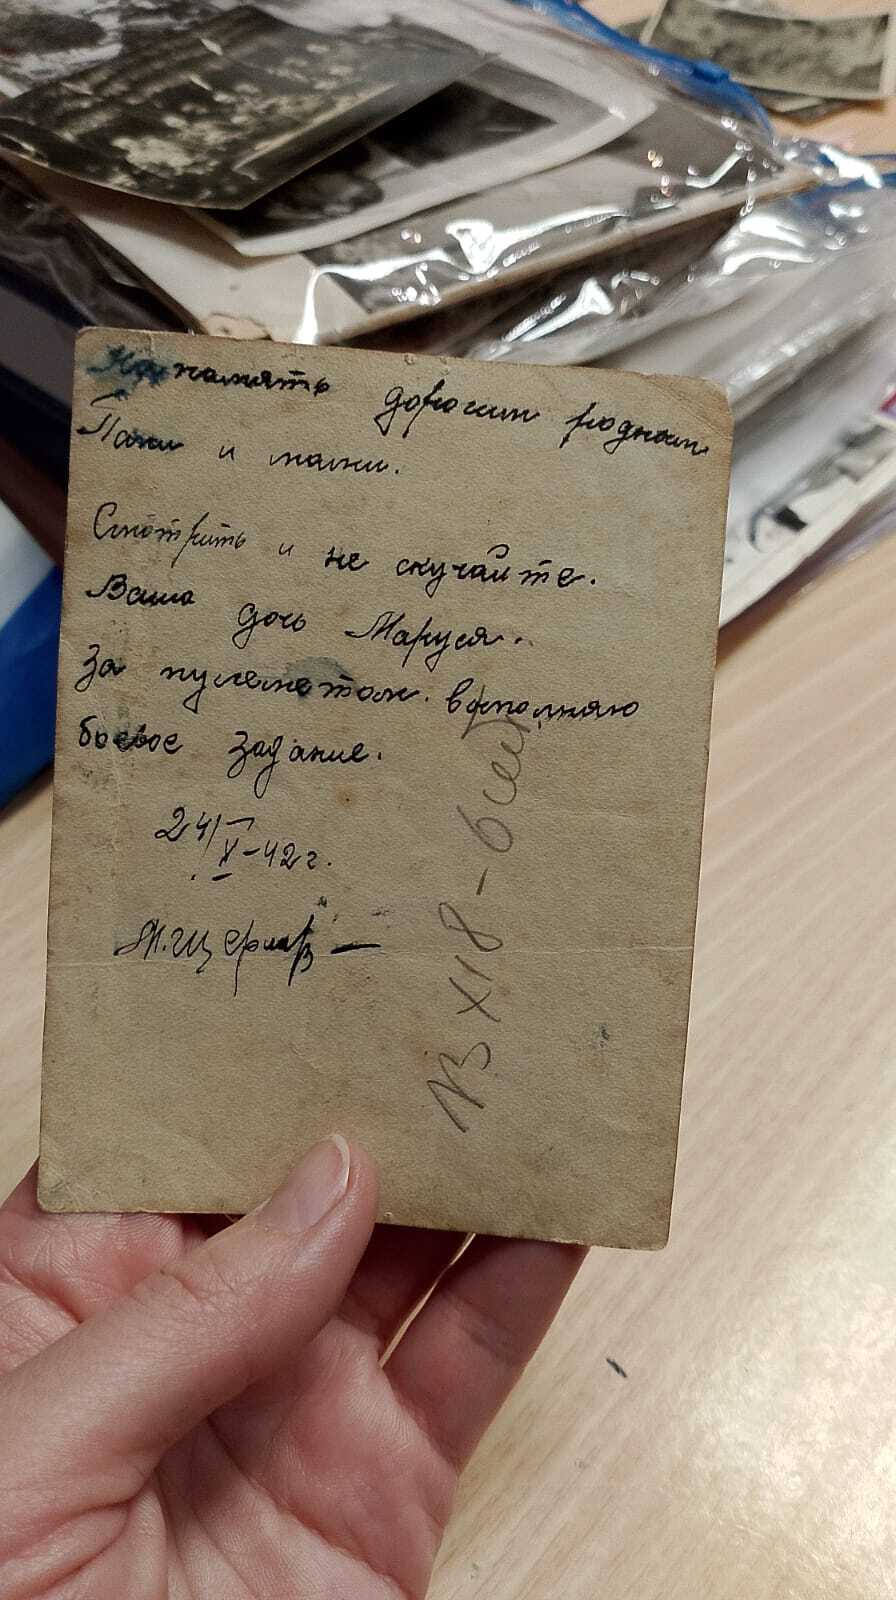 На память дорогим родным
Папи и мами.
Смотрить и не скучайте.
Ваша дочь Маруся.
За пулеметом. выполняю
боевое задание.
24/V-42 г.
М. Щ
18-6